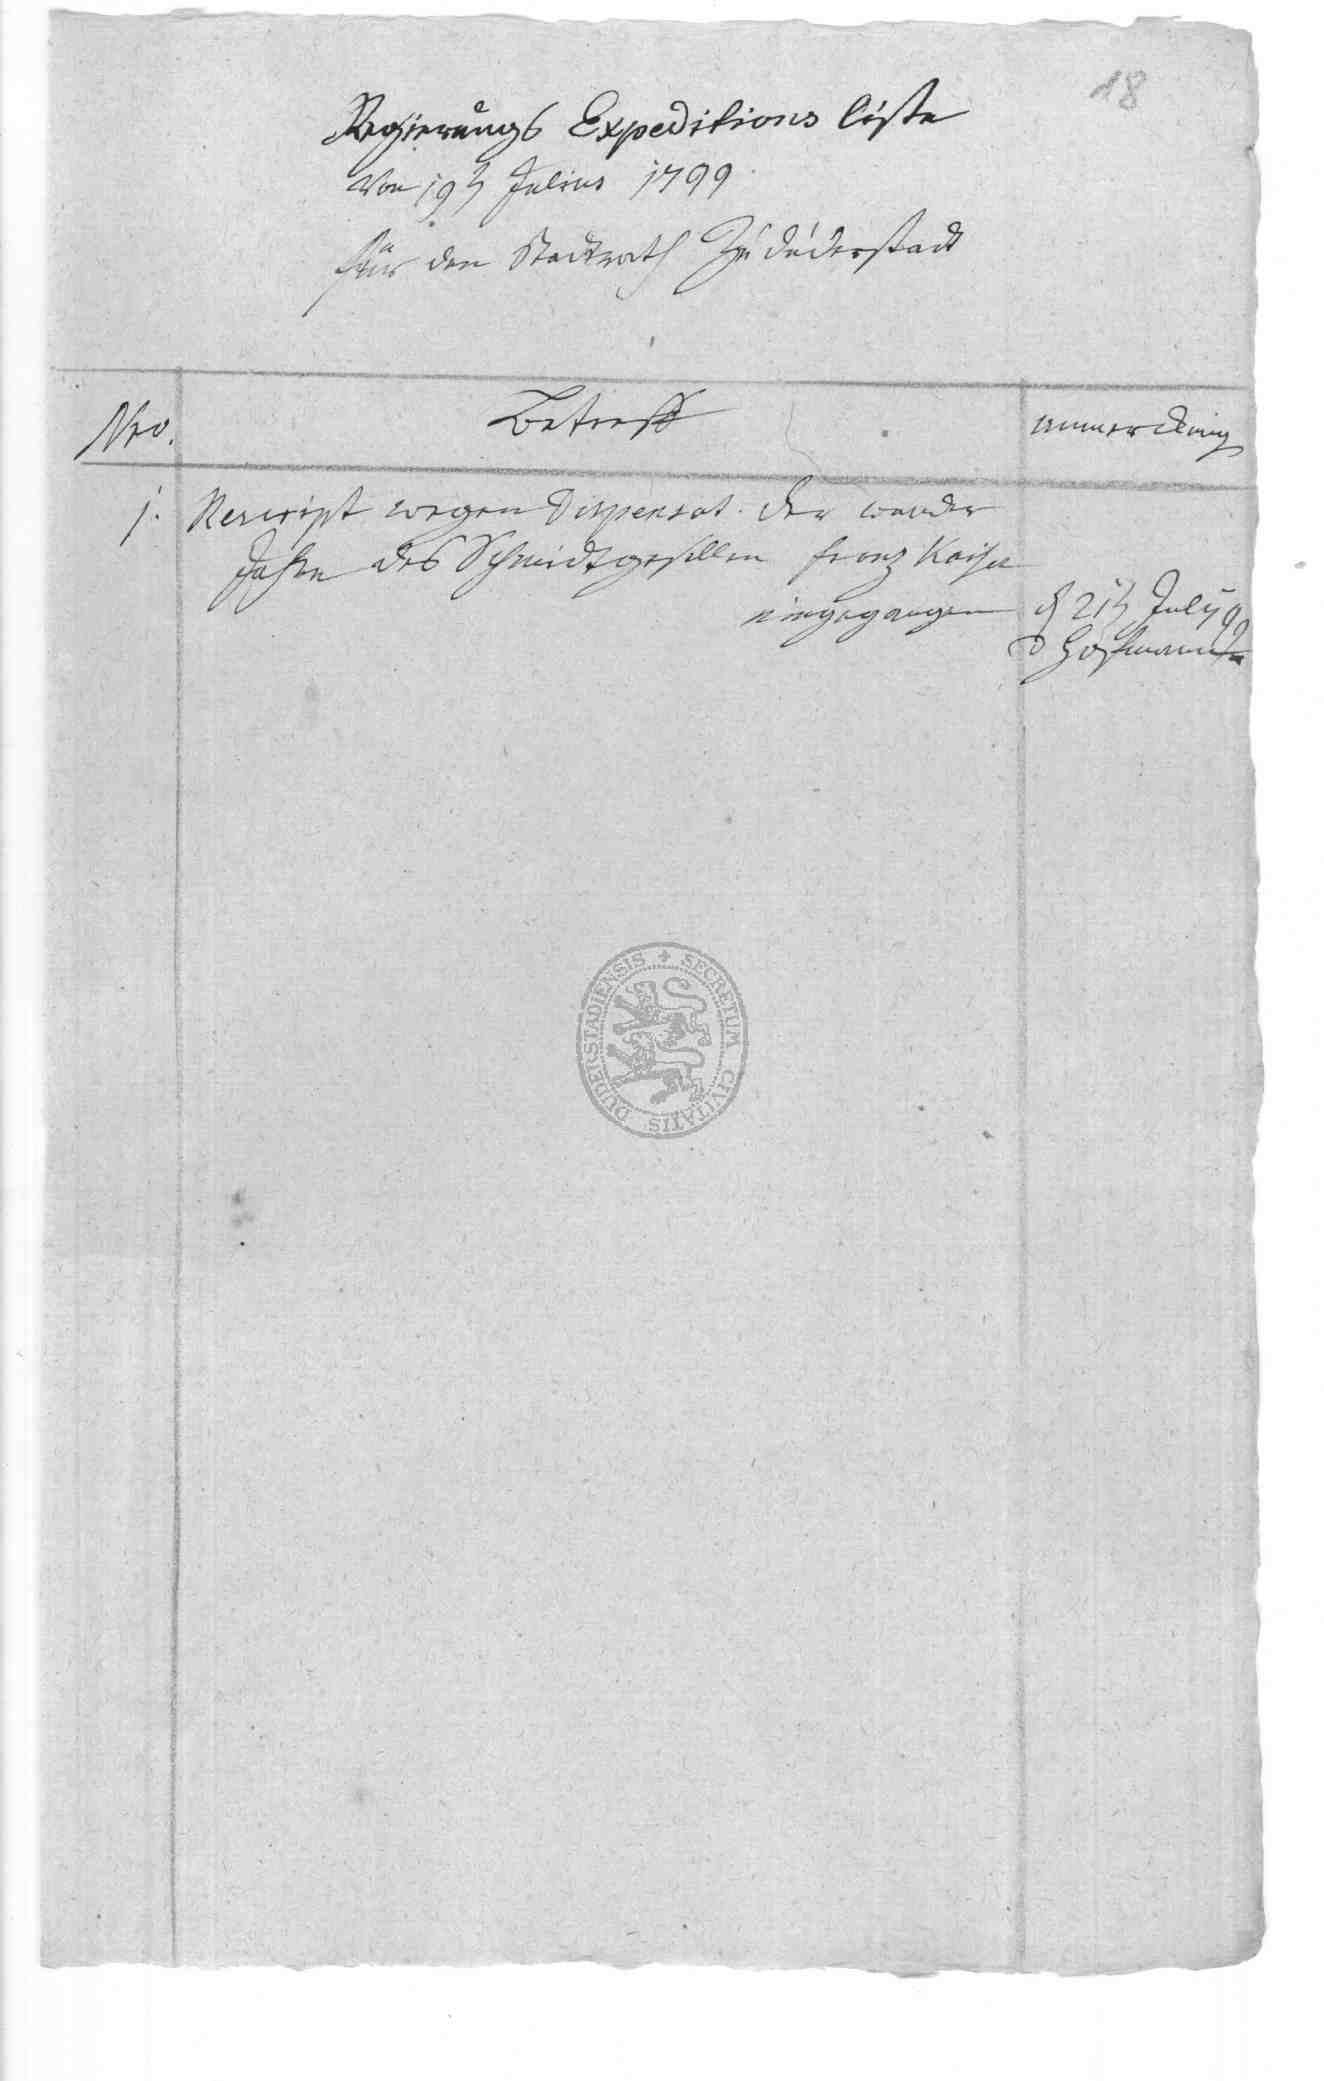 18
Regierungs Expeditions liste
Von 19t Julius 1799
für den Stadtrath Zu duderstadt
Nro. Betreff anmerckung
1. Rescript wegen Dispensat. der wander
Jahre des Schmidtgesellen franz Kaiser
eingegangen d 21t July 99
Hoffmann
SECRETUM CIVITATIS DUDERSTADIENSIS